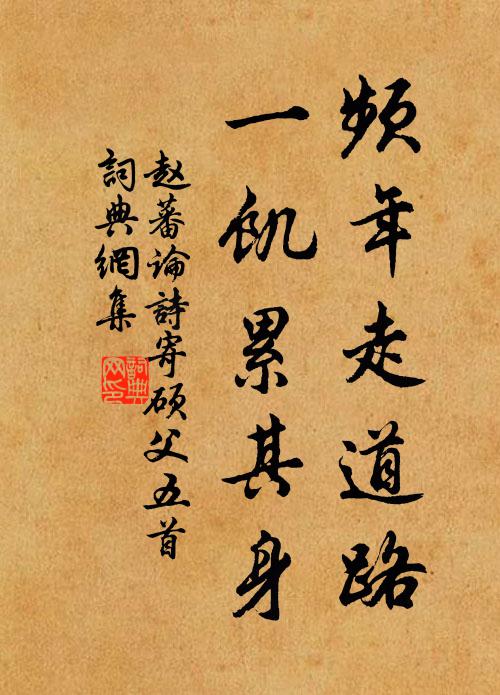 频年走道路
一饥累其身
赵蕃论詩寄硕父五首
詞典網集
詞典
网印